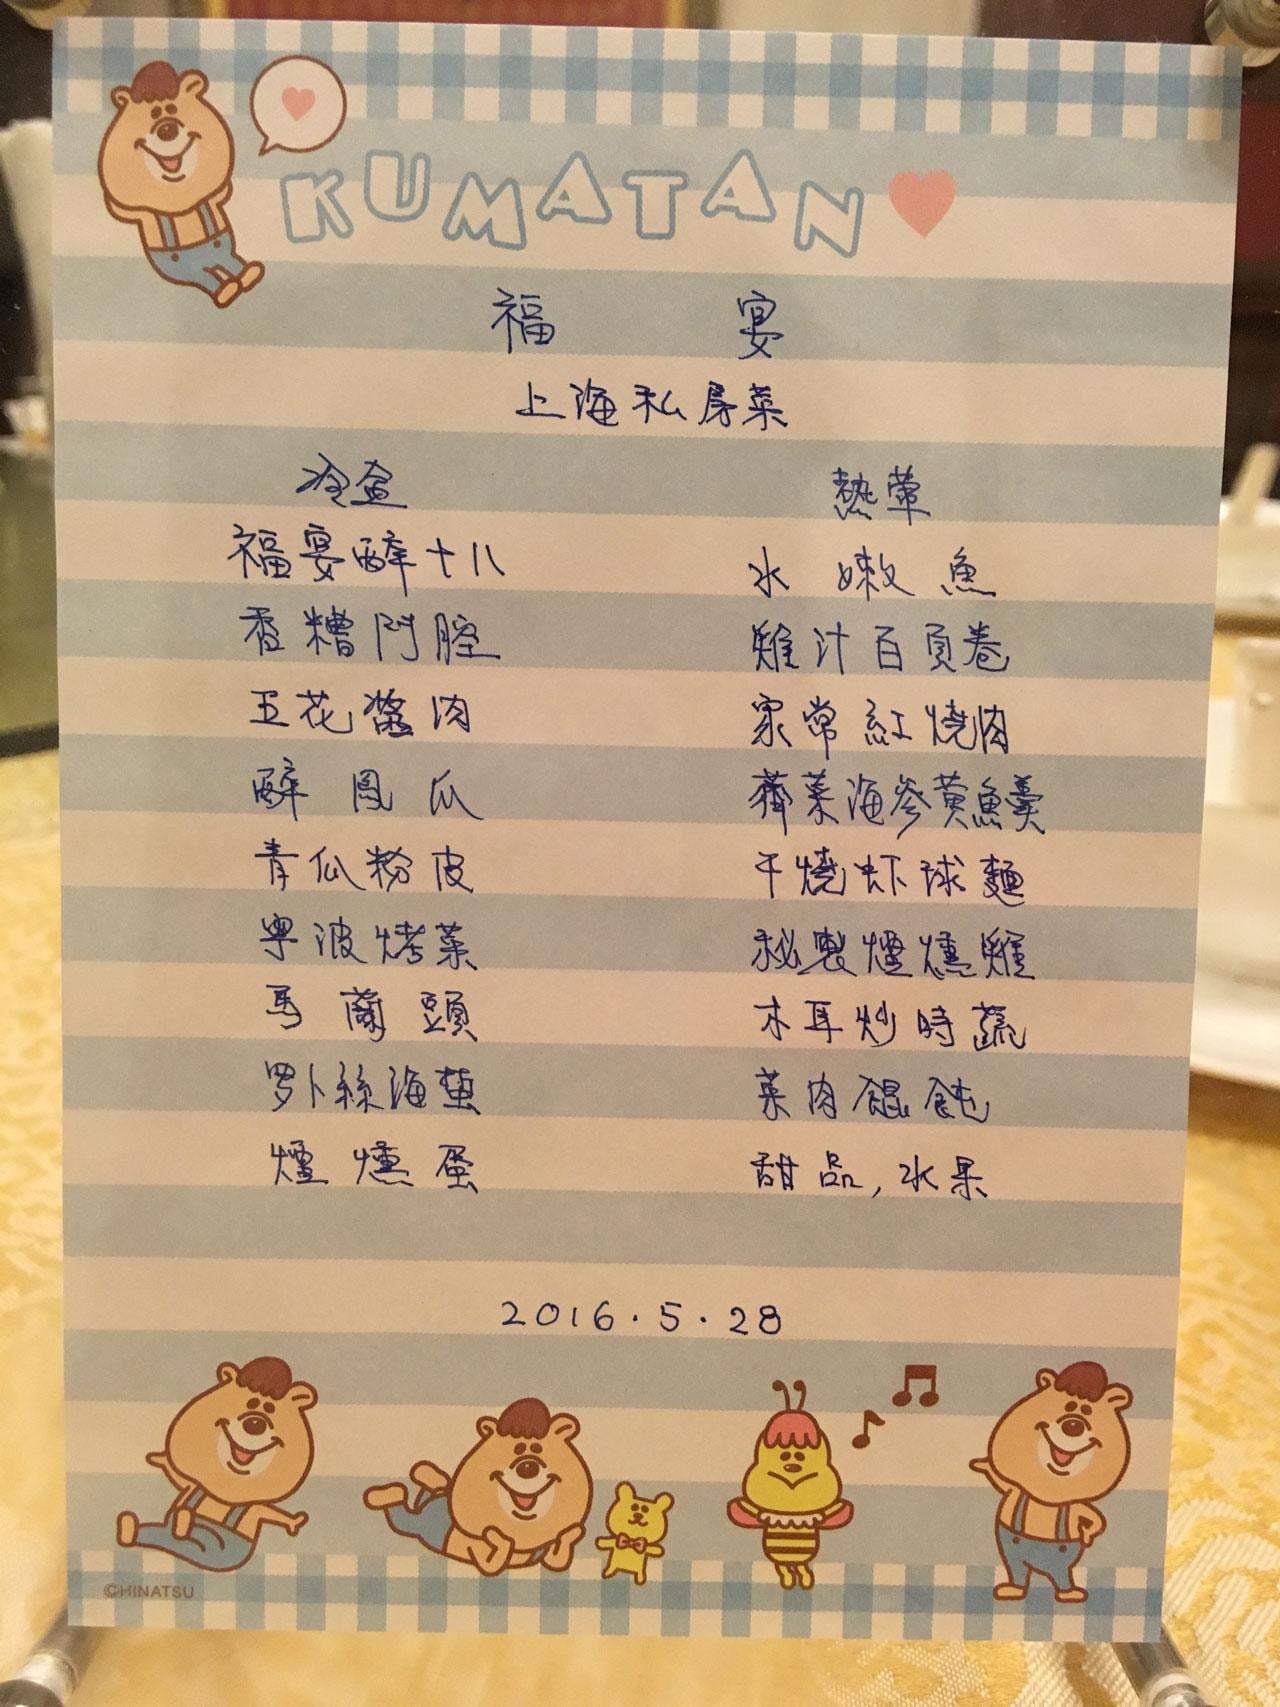 KUMATAN
福 宴
上海私房菜
冷盒
福宴醉十八
香糟門腔
五花醬肉
醉鳳爪
青瓜粉皮
寧波烤菜
馬蘭頭
罗卜絲海蜇
煙燻蛋
熱葷
水嫩魚
雞汁百頁卷
家常紅燒肉
薺菜海参黄魚羹
干燒虾球麵
秘製煙燻雞
木耳炒時蔬
菜肉餛飩
甜品,水果
2016.5.28
©HINATSU